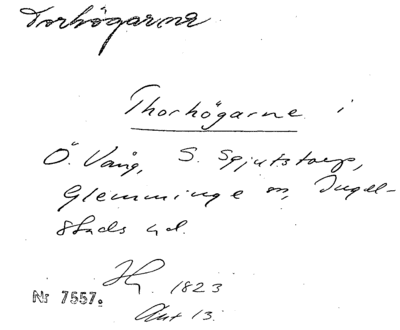 Torhögarne
Thorhögarne i
Ö. Vång, S. Spjutstorp,
Glemminge m, Ingel-
stads hd.
1823
Nr 7557.
Ant 13.